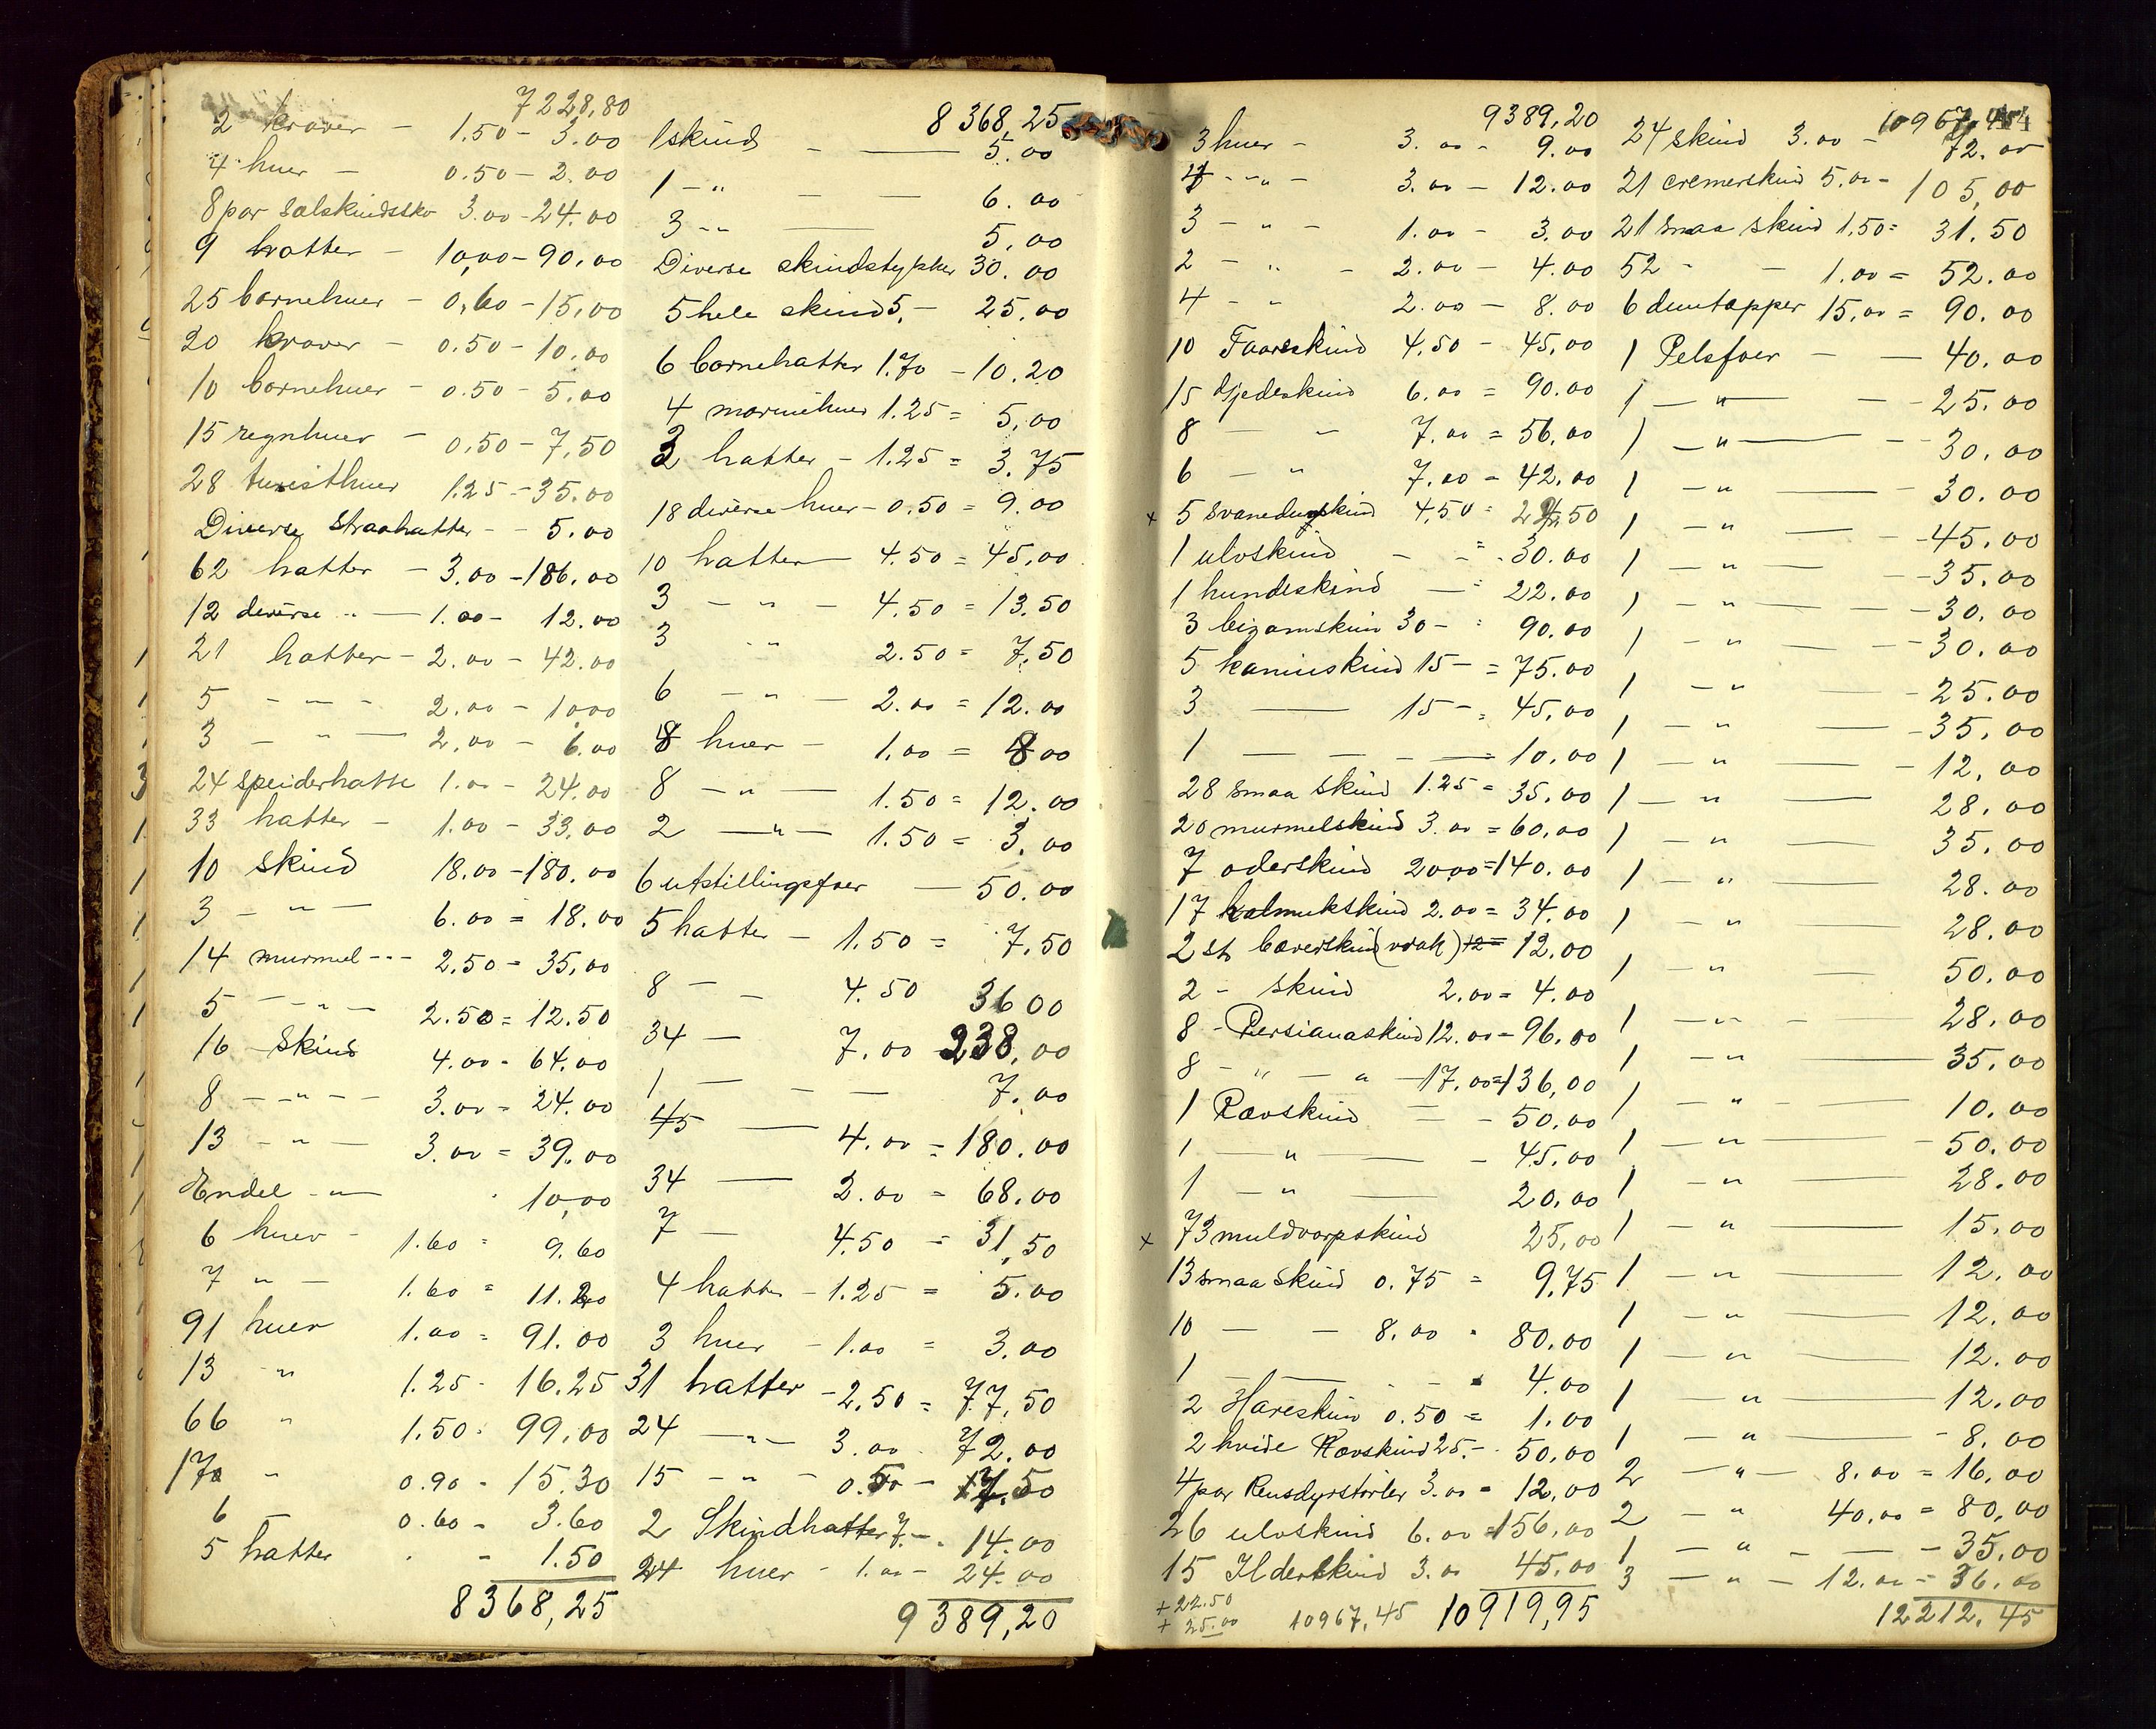 7228,80
2 kraver - 1.50 - 3.00
4 huer - 0.50 - 2.00
8 par Sælskindssko 3.00 - 24.00
9 hatter - 10,00 - 90.00
25 barnehuer - 0,60 - 15,00
20 kraver - 0.50 - 10.00
10 barnehuer - 0.50 - 5.00
15 regnhuer - 0,50 - 7,50
28 turisthuer 1.25 - 35.00
Diverse Straahatter - - 5.00
62 hatter - 3.00 - 186.00
12 diverse " - 1.00 - 12.00
21 hatter - 2.00 - 42.00
5 - " - 2.00 - 10,00
3 - " - 2,00 - 6.00
24 speiderhatte 1.00 - 24.00
33 hatter - 1.00 - 33,00
10 skind 18.00 - 180.00
3 - " - 6.00 = 18.00
14 murmel - - - 2,50 - 35,00
5 - " - 2.50 = 12.50
16 - Skind 4.00 - 64.00
8 - " - - 3.00 - 24.00
13 - " - 3.00 = 39.00
Endel - " - 10,00
6 huer - 1.60 = 9.60
7 " - 1.60 = 11.20
91 huer 1.00 = 91.00
13 " 1.25 - 16.25
66 " 1.50 - 99,00
17 " 0.90 - 15.30
6 - 0.60 - 3.60
5 hatter - 1.50
8368,25
8368,25
1 skind - — 5.00
1 - " - - 6.00
3 - " — 5,00
Diverse skindstykker 30.00
5 hele skind 5,- 25,00
6 barnehatter 1.70 - 10.20
4 marinehuer 1.25 = 5,00
3 hatter - 1.25 = 3.75
18 diverse huer - 0.50 = 9.00
10 hatter - 4.50 = 45,00
3 - " - 4.50 = 13.50
3 " 2.50 = 7,50
6 - " - 2.00 = 12.00
8 huer - 1.00 = 8 00
8 - " - 1.50 = 12.00
2 - " - 1.50 = 3,00
6 utstillingsfoer — 50.00
5 hatter - 1.50 = 7,50
8 - - 4.50 36 00
34 - 7.00 238,00
1 - - - 7.00
45 — 4.00 = 180.00
34 — 2.00 = 68.00
7 — 4.50 = 31,50
4 hatter - 1.25 = 5.00
3 huer - 1.00 = 3.00
31 hatter - 2,50 = 77,50
24 - " - 3.00 - 72.00
15 - " - 0.50 - 7,50
2 Skindhatter 7.- - 14.00
24 huer - 1.00 - 24.00
9389,20
9389,20
3 huer - 3.00 - 9.00
4 - " - 3.00 - 12.00
3 - " - 1.00 - 3.00
2 - " - 2.00 - 4.00
4 - " 2.00 - 8.00
10 Faareskind 4,50 - 45,00
15 Gjedeskind 6.00 = 90.00
8 — - 7.00 = 56.00
6 — " 7.00 - 42.00
x 5 svanedunskind 4,50 = 22,50
1 ulvskind - - = 30.00
1 hundeskind - = 22.00
3 bizamskin 30 - = 90.00
5 kaninskind 15 - = 75.00
3 — 15 - = 45,00
1 — - - = 10.00
28 smaa skind 1.25 = 35,00
20 murmelskind 3.00 = 60,00
7 oderskind 20,00 = 140.00
17 kalmukskind 2.00 = 34.00
2 st bæverskind (vrak) 12 = 12.00
2 - skind 2,00 = 4.00
8 - Persianaskind 12.00 - 96.00
8 - " - " - 17.00 = 136,00
1 Rævskind - - 50.00
1 — " — - 45.00
1 — " — 20,00
x 73 muldvarpskind 25,00
13 smaa skind 0.75 = 9,75
10 — - 8.00 = 80.00
1 — - - 4.00
2 Hareskin 0.50 = 1.00
2 hvide Rævskind 25.- - 50,00
4 par Rensdyrstørler 3.00 = 12,00
26 ulvskind 6.00 = 156,00
15 Ilderskind 3.00 45.00
+ 22.50
+ 25.00 10967,45 10919,95
10967,45
24 skind 3.00 - 72.00
21 cremerskind 5,00 - 105,00
21 smaa skind 1,50 = 31.50
52 - - 1.00 = 52.00
6 duntapper 15,00 = 90.00
1 Pelsfoer - - 40.00
1 — " — - 25.00
1 — " — - 30.00
1 - " — - 30.00
1 - " — - 45.00
1 - " — - 35.00
1 - " — - 30.00
1 - " — - 30.00
1 - " — - 25.00
1 - " — - 35.00
1 - " — - 12,00
1 - " — 28.00
1 - " — 35.00
1 - " — 28.00
1 - " — 28.00
1 - " — 50.00
1 - " - 28.00
1 - " — 35.00
1 - " — 10.00
1 - " — - 50.00
1 - " — 28.00
1 - " — 15.00
1 - " — 12.00
1 - " — 12.00
1 - " — 12.00
1 - " — 12.00
1 - " — - 8.00
2 — " — 8.00 = 16,00
2 - " 40.00 = 80,00
1 - " - — - 35.00
3 - " - 12.00 - 36.00
12212,45